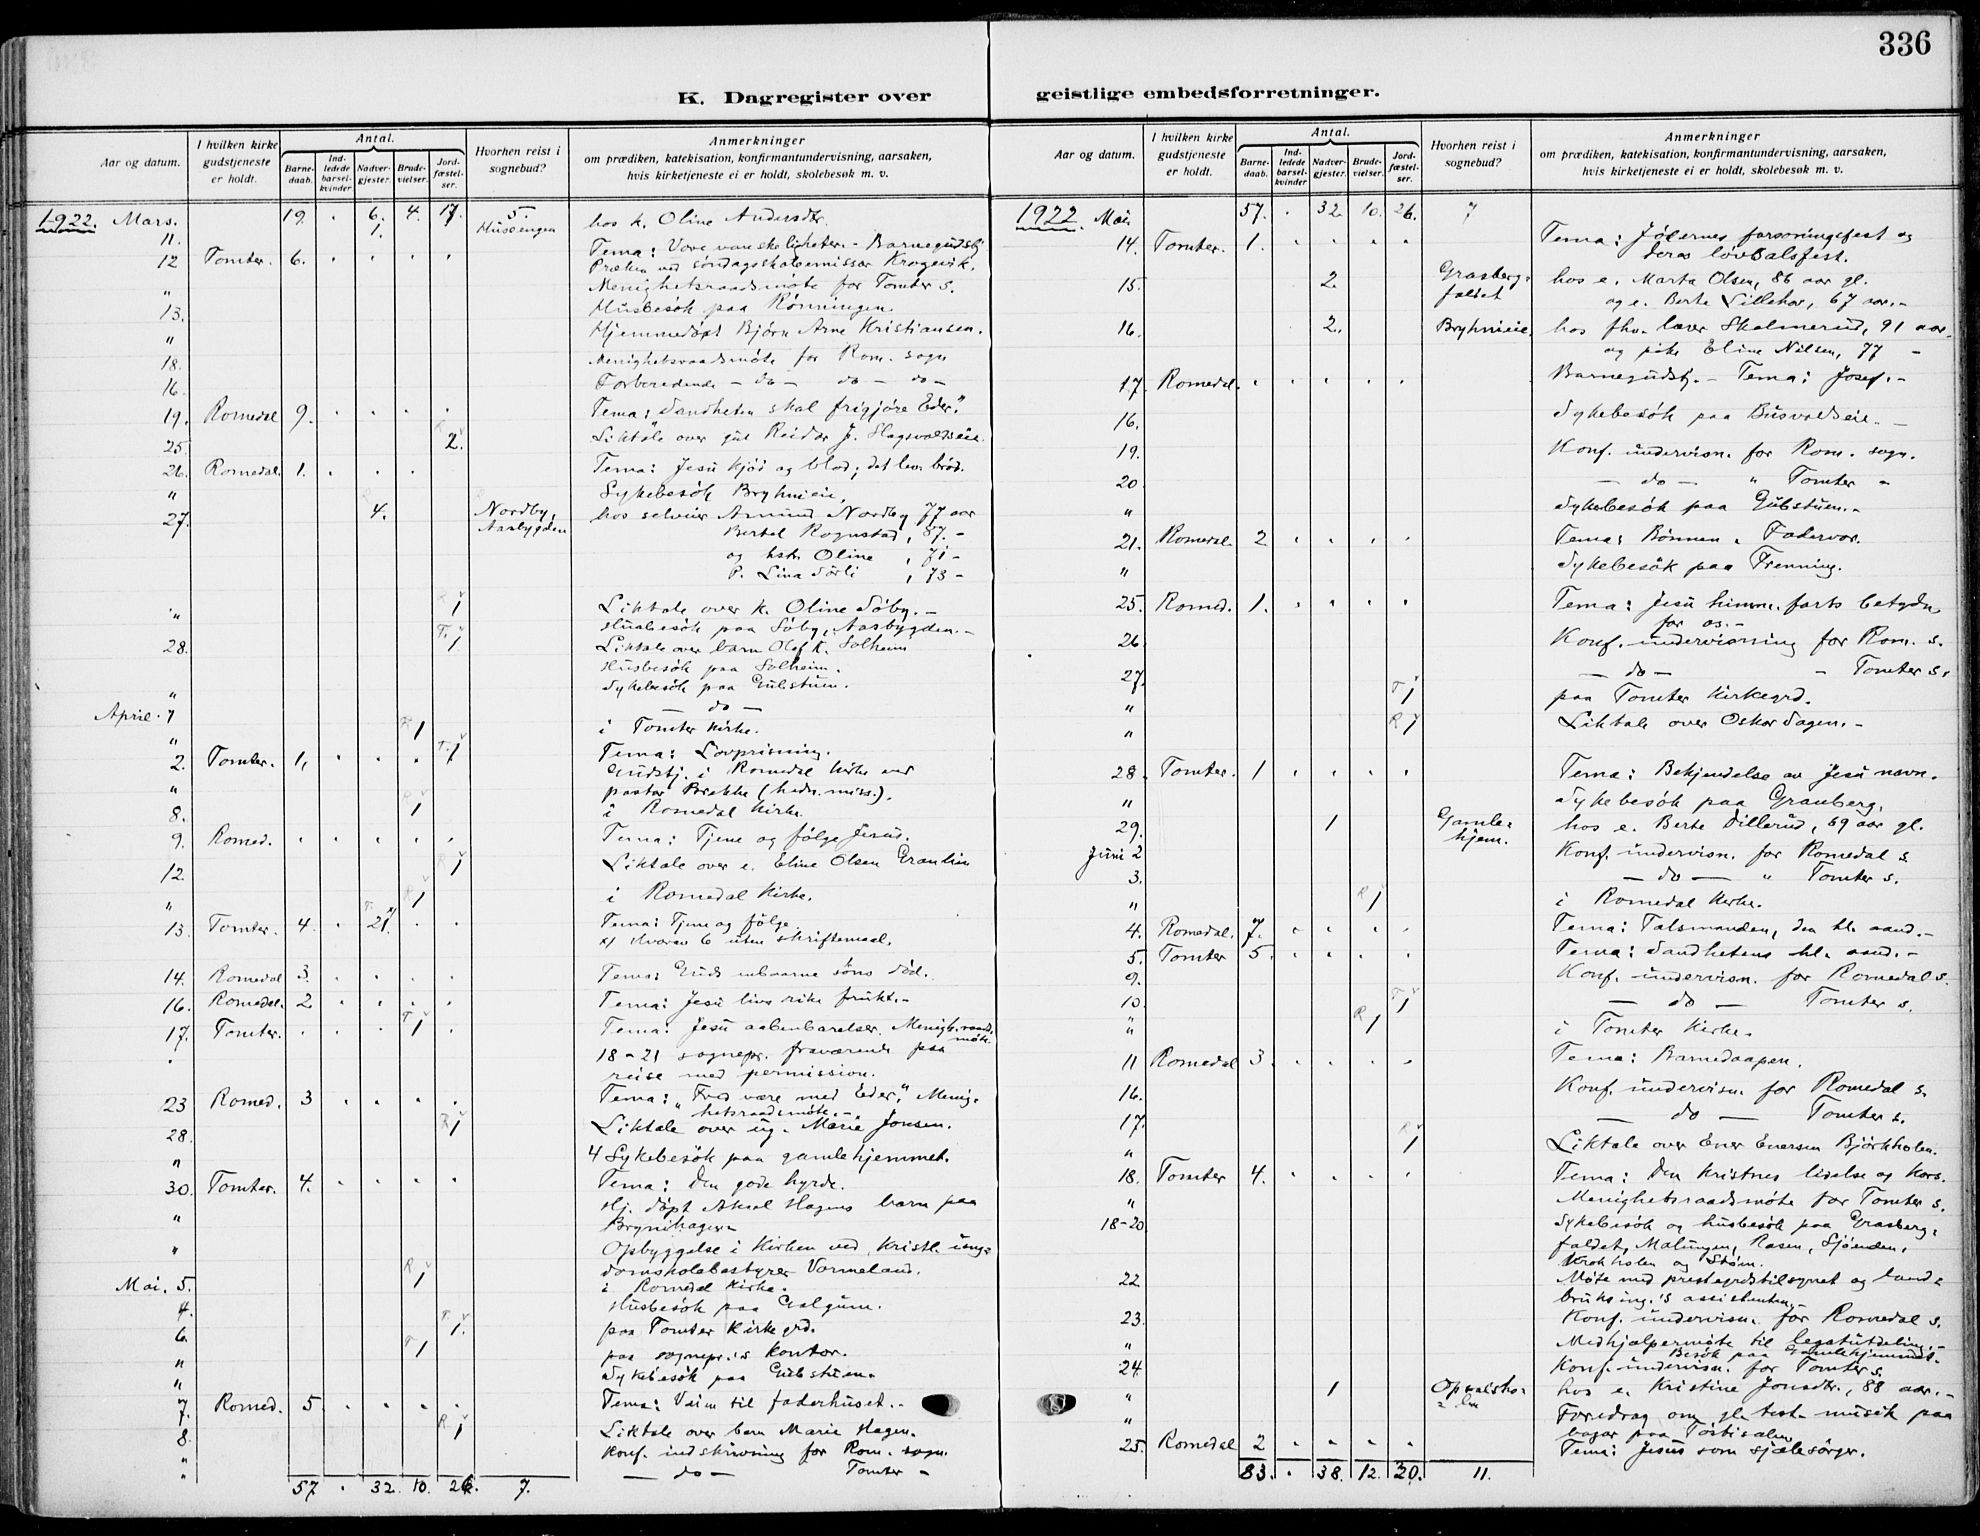 336
K. Dagregister over
geistlige embedsforretninger.
Aar og datum.
I hvilken kirke gudstjeneste er holdt.
Antal.
Barnedaab.
Indledede barselkvinder
Nadvergjester.
Brudevielser.
Jordfæstelser.
Hvorhen reist i sognebud?
Anmerkninger
om prædiken, katekisation, konfirmantundervisning, aarsaken,
hvis kirketjeneste ei er holdt, skolebesøk m. v.
1922. Mars. 19. . 6. 4. 17. 5
11. 1. Husoengen hos k. Oline Andersdtr.
12 Tomter. 6. . . . . Tema: Vore vanskeligheter. - Barnegudstj.
Præken ved søndagsskoleemissær Krogevik.
" Menighetsraadsmöte for Tomter s.
13. Husbesök paa Rønningen.
" Hjemmedöpt Björn Arne Kristiansen.
18. Menighetsraadsmöte for Rom. sogn
16. Forberedende - do - do - do -
19. Romedal 9. . . . . Tema: "Sandheten skal frigjöre Eder."
25. R 2. Liktale over gut Reidar J. Hagsvoldseie.
26. Romedal. 1. . . . Tema: Jesu kjöd og blod; det lev. bröd.
" Sykebesök Bryhnieie.
27. 4. Nordby, Aasbygden hos selveier Amund Nordby 77 aar
Bertel Rognstad, 87. -
og hstr. Oline , 71 -
P. Lina Sörli , 73 -
" R 1 Liktale over k. Oline Söby. -
Husbesök paa Söby, Aasbygden. -
28. T. 1 Liktale over barn Olof K. Solheim
Husbesök paa Solheim.
Sykebesök paa Gubstuen.
" - do -
April. 1 R 1 i Tomter kirke.
" T. 1
2. Tomter. 1. . . . Tema: Lovprisning.
" Gudstj. i Romedal kirke ved
pastor Brekke (hedn. miss.).
8. R 1 i Romedal kirke.
9. Romed. . . . . . Tema: Tjene og fölge Jesus.
12. R 1 Liktale over e. Eline Olsen
" R 1 i Romedal kirke.
13. Tomter. 4. . T. 21. x) . . Tema: Tjene og fölge.
x) Hvorav 6 uten skriftemaal.
14. Romedal 3. . . . . Tema: Guds enbaarne söns död.
16. Romedal. 2. . . . . Tema: Jesu livs rike frukt. -
17. Tomter. . . . T 1 . Tema: Jesu aabenbarelser. Menigh.raadsmöte.
18 - 21 sognepr. fraværende paa
reise med permission.
23 Romed. 3 . . . . Tema: "Fred være med Eder," Menighetsraadsmöte. -
28. R 1 Liktale over ug. Marie Jonsen.
" 4 Sykebesök paa gamlehjemmet.
30. Tomter. 4. . . . . Tema: Den gode hyrde.
" Hj. döpt Aksel Hagens barn paa
Brynihagen
" Opbyggelse i kirken ved kristl. ungdomsskolebestyrer Varmeland.
Mai. 5. R 1 i Romedal kirke.
4. Husbesök paa Galgum.
6. T 1. paa Tomter kirkegrd.
" T 1 paa sognepr.'s kontor.
" Sykebesök paa Gubstuen.
7. Romed. 5. . . . . Tema: Veien til faderhuset. -
8. R 1 Liktale over barn Marie Hagen.
" Konf. indskrivning for Rom. sogn.
" - do - Tomter -
57 . 32. 10. 26. 7.
Aar og datum.
I hvilken kirke gudstjeneste er holdt.
Antal.
Barnedaab.
Indledede barselkvinder
Nadvergjester.
Brudevielser.
Jordfæstelser.
Hvorhen reist i sognebud?
Anmerkninger
om prædiken, katekisation, konfirmantundervisning, aarsaken,
hvis kirketjeneste ei er holdt, skolebesøk m. v.
1922. Mai 57. . 32. 10. 26. 7
14. Tomter. 1. . . . . Tema: Jödernes forsoningsfest og
deres lövsalsfest.
15. 2. Grasbergfaldet hos e. Marta Olsen, 86 aar gl.
og e. Berte Lillehov, 67 aar. -
16. 2. Bryhnieie. hos fhv. lærer Skolmerud, 91 aar.
og pike Eline Nilsen, 77 -
17. Romedal. . . . . . Barnegudstj. - Tema: Josef. -
16. Sykebesök paa Busvoldseie. -
19. Konf. undervisn. for Rom. sogn.
20 - do - " Tomter -
" Sykebesök paa Gubstuen. -
21. Romedal. 2 . . . . Tema: Bönnen. Fadervor.
" Sykebesök paa Frenning.
25. Romed. 1. . . . . Tema: Jesu himmelfarts betydn.
for os. -
26. Konf. undervisning for Rom. s.
27. - do - - Tomter s.
" T 1 paa Tomter kirkegrd.
" R 1 Liktale over Oskar Sagen. -
28. Tomter. 1 . . . . Tema: Bekjendelse av Jesu navn.
" Sykebesök paa Granberg.
29. 1 Gamlehjem. hos e. Berte Dillerud, 69 aar gl.
Juni 2 Konf. undervisn. for Romedal s.
3. - do - " Tomter s.
" R 1 i Romedal kirke.
4. Romedal. 7. . . . . Tema: Talsmanden, den hl. aand. -
5. Tomter 5. . . . . Tema: Sandhetens hl. aand. -
9. Konf. undervisn. for Romedal s.
10. T 1 - do - Tomter s.
" R 1 i Tomter kirke.
11 Romedal 3. . . . . Tema: Barnedaapen.
16. Konf. undervisn. for Romedal s.
17. - do - Tomter s.
" R 1 Liktale over Ener Enersen Björkholen.
18. Tomter 4. . . . . Tema: Den kristnes lidelse og kors.
" Menighetsraadsmöte for Tomter s.
18-20 Sykebesök og husbesök paa Grasbergfaldet, Malungen, Rasen, Sjöenden,
Krokholen og Støm.
22. Möte med prestegrdstilsynet og landbruksing.'s assistenten. -
23. Konf. undervisn. for Romedal s.
" Medhjælpermöte til legatutdeling. -
Besök paa Gamlehjemmet. -
24. Konf. undervisn. for Tomter s.
" 1 hos e. Kristine Jonsdtr., 88 aar. -
" Foredrag om gl. test. musik paa
25. Romedal 2 . . . . Tema: Jesus som sjælesörger.
83. . 38. 12. 30. 11.